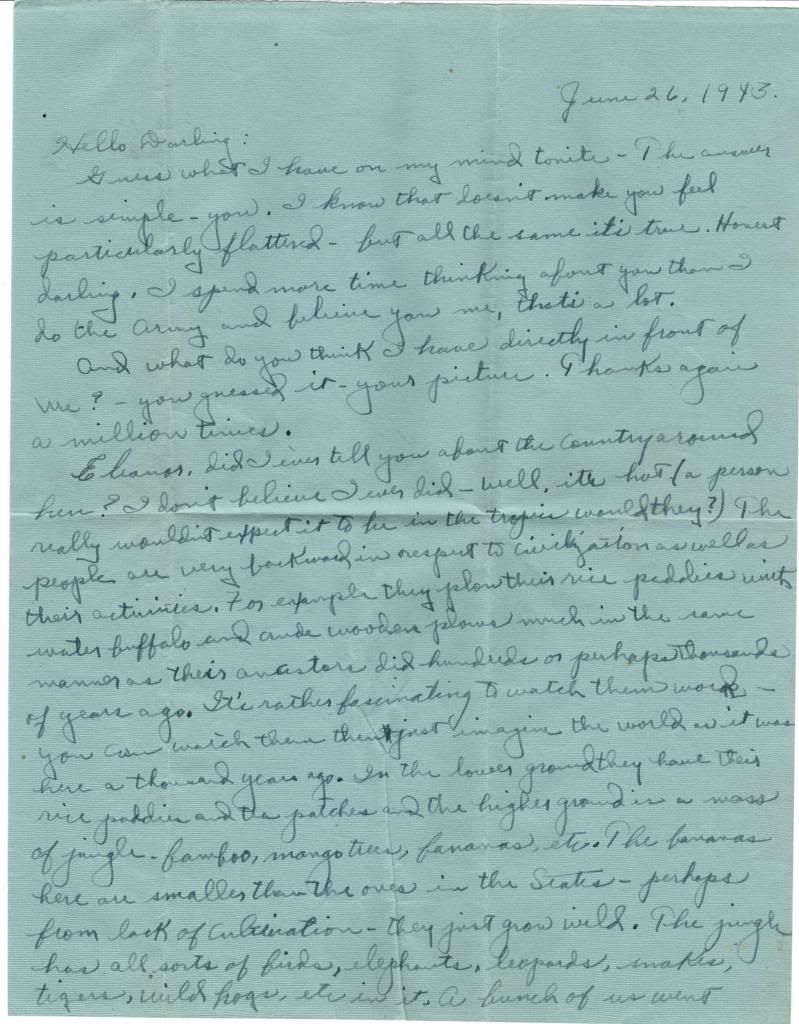 June 26, 1943.
Hello Darling:
Guess what I have on my mind tonite - The answer
is simple - you. I know that doesn't make you feel
particularly flattered - but all the same it's true. Honest
darling, I spend more time thinking about you than I
do the Army and believe you me, that's a lot.
And what do you think I have directly in front of
me? - you guessed it - your picture. Thanks again
a million times.
Eleanor, did I ever tell you about the country around
here? I don't believe I ever did - well, it's hot (a person
really wouldn't expect it to be in the tropics would they?) The
people are very backward in respect to civilization as well as
their activities. For example they plow their rice paddies with
water buffalo and crude wooden plows much in the same
manner as their ancestors did hundreds or perhaps thousands
of years ago. It's rather fascinating to watch them work -
you can watch them then just imagine the world as it was
here a thousand years ago. In the lower ground they have their
rice paddies and tea patches and the higher ground is a mass
of jungle - bamboo, mango trees, bananas, etc. The bananas
here are smaller than the ones in the States - perhaps
from lack of cultivation - they just grow wild. The jungle
has all sorts of birds, elephants, leopards, snakes,
tigers, wild hogs, etc in it. A bunch of us went